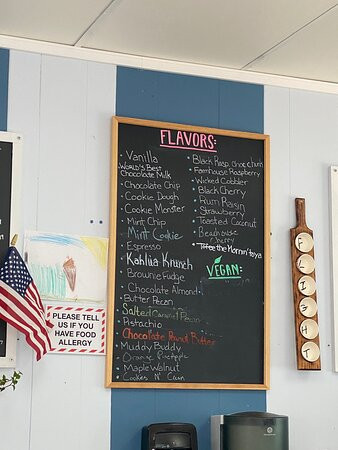 FLAVORS:
Vanilla
WORLD'S BEST
Chocolate Milk
Chocolate Chip
Cookie Dough
Cookie Monster
Mint Chip
Mint Cookie
Espresso
Kahlúa Krunch
Brownie Fudge
Chocolate Almond
Butter Pecan
Salted Caramel Pecan
Pistachio
Chocolate Peanut Butter
Muddy Buddy
Orange Pineapple
Maple Walnut
Cookies N' Cream
Black Rasp. Choc. Chunk
Farmhouse Raspberry
Wicked Cobbler
Black Cherry
Rum Raisin
Strawberry
Toasted Coconut
Cherry
Toffee the Mornin' to ya
VEGAN:
PLEASE TELL
US IF YOU
HAVE FOOD
ALLERGY
FLIGHT